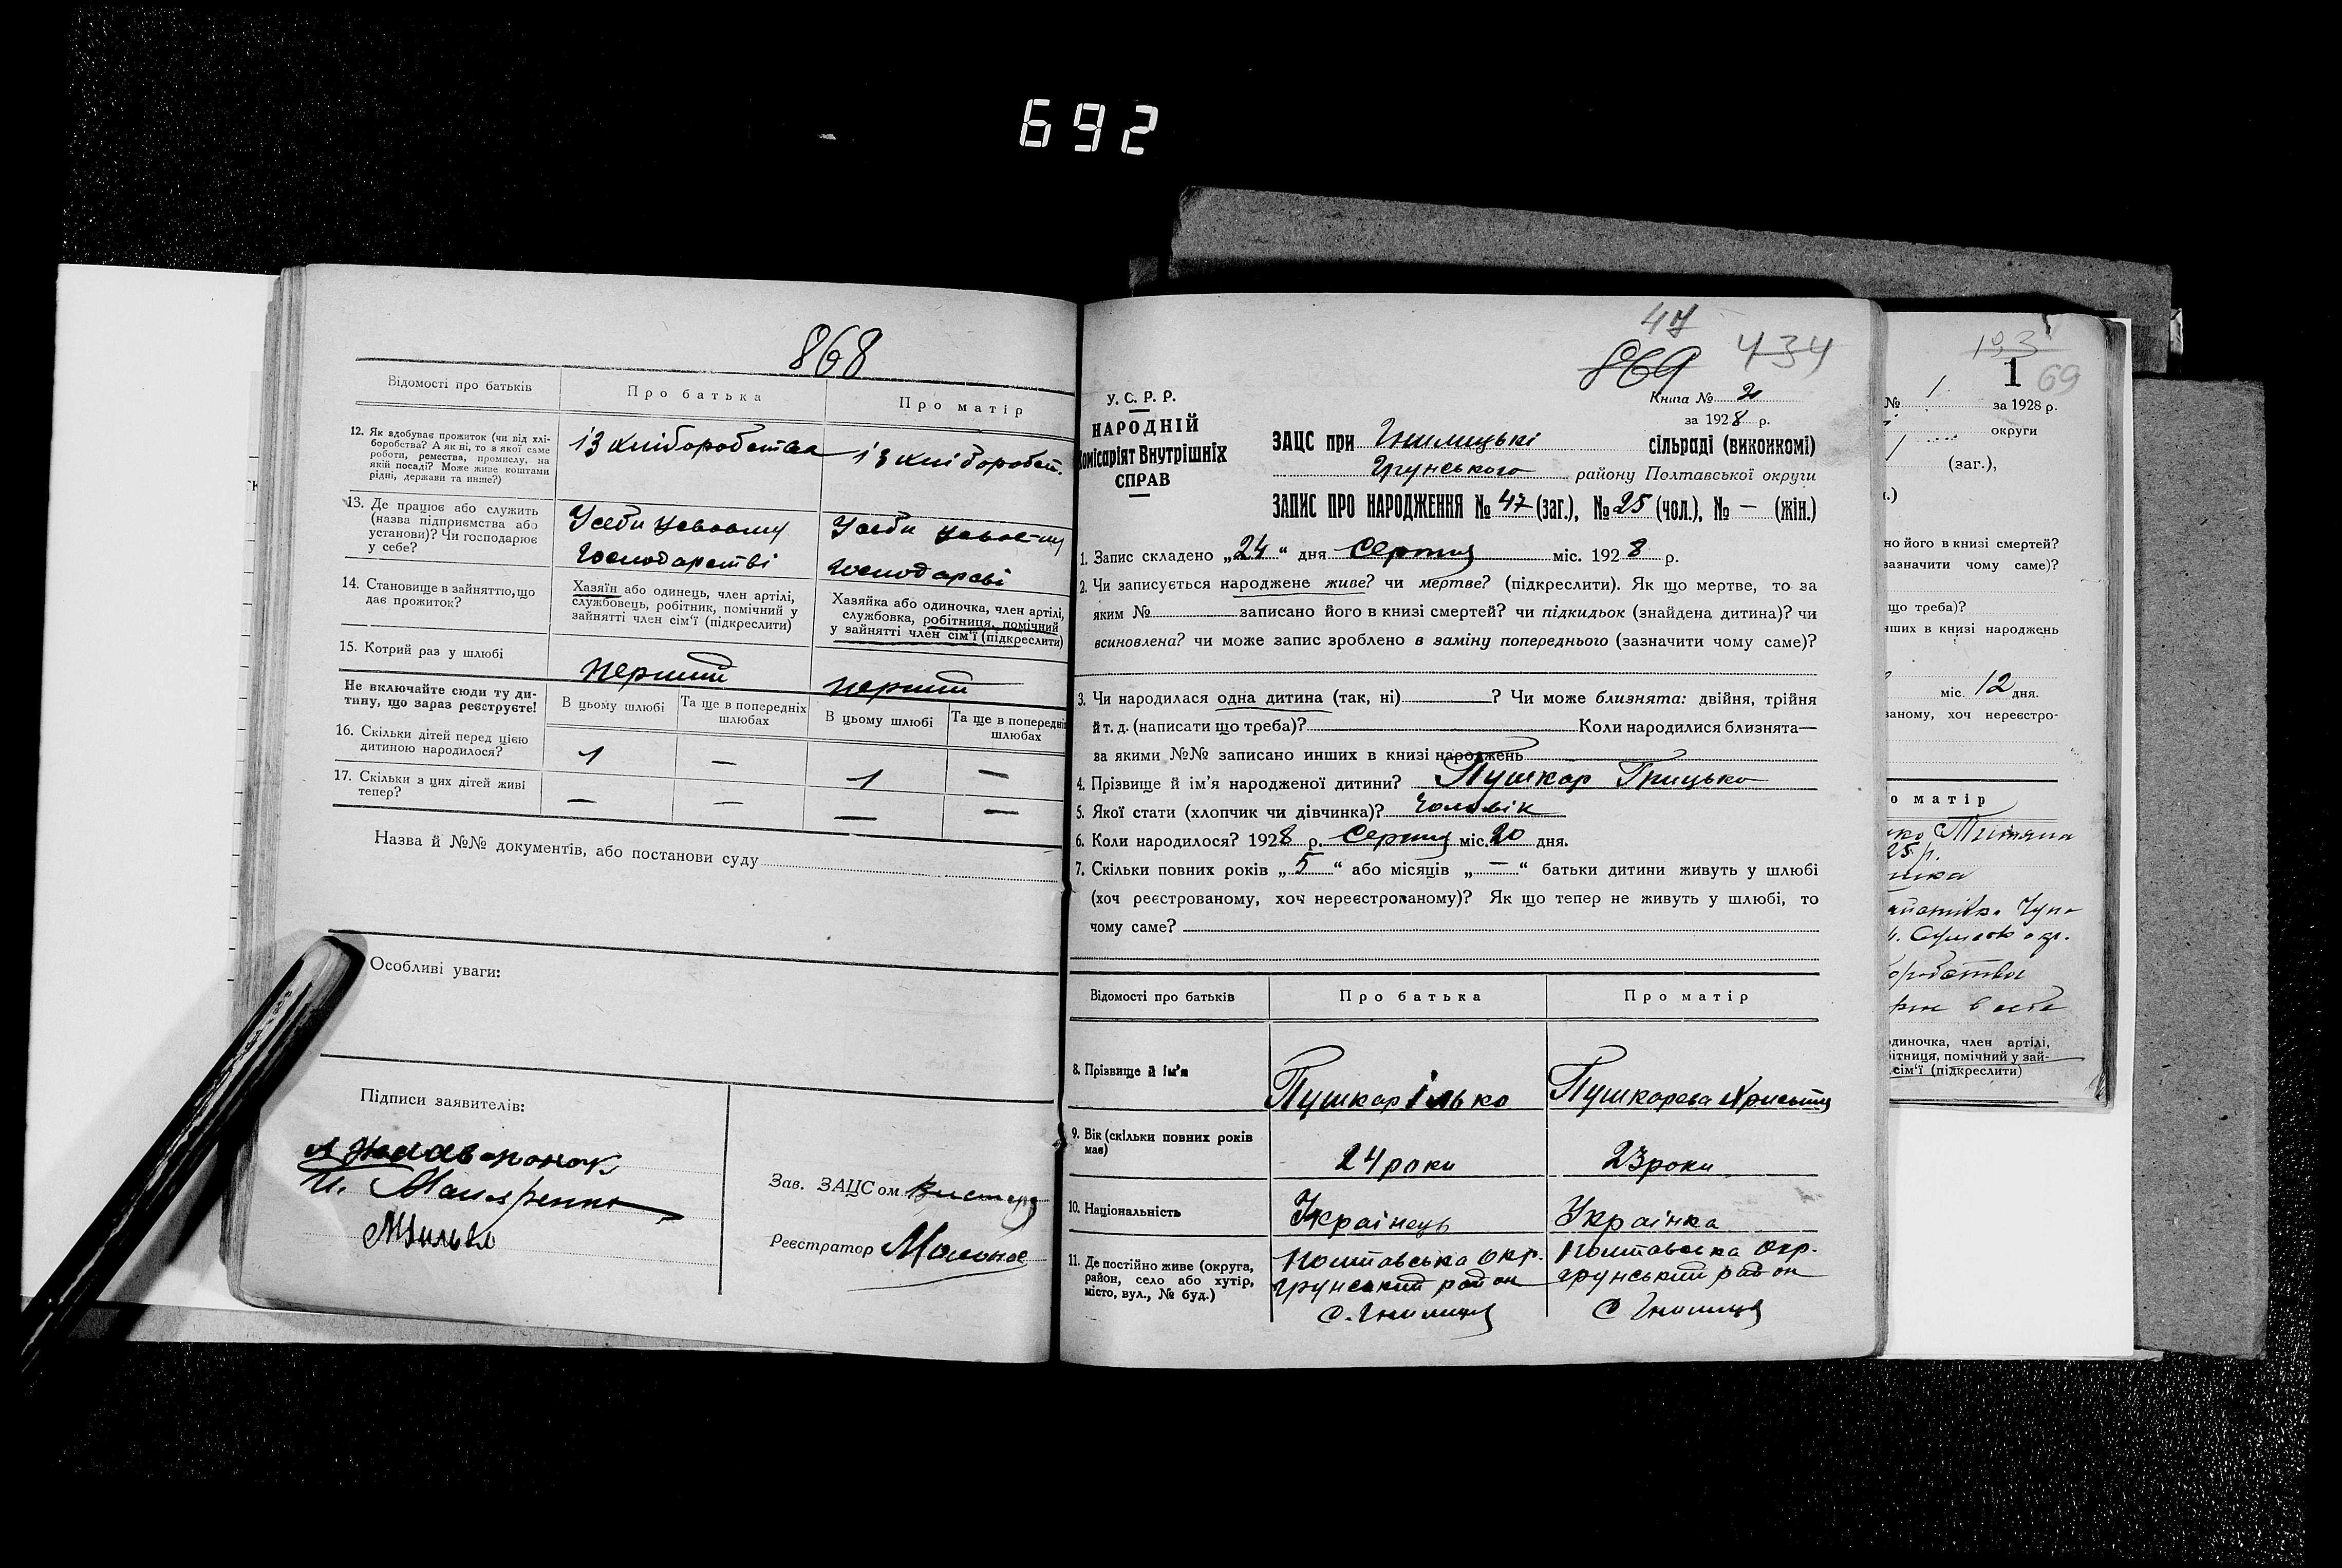 692
868
Відомості про батьків
Про батька
Про матір
12. Як здобуває прожиток (чи від хлі-
боробства? А як ні, то з якої саме
роботи, ремества, промислу, на
якій посаді? Може живе коштами
рідні, держави та инше?)
із хліборобства
із хліборобст.
13. Де працює або служить
(назва підприємства або
установи)? Чи господарює
у себе?
Усеби
господарстві
Усеби
14. Становище в зайняттю, що
дає прожиток?
Хазяїн або одинець, член артілі,
службовець, робітник, помічний у
зайнятті член сім'ї (підкреслити)
Хазяйка або одиночка, член артілі,
службовка, робітниця, помічний
у зайнятті член сім'ї (підкреслити)
15. Котрий раз у шлюбі
перший
перший
Не включайте сюди ту ди-
тину, що зараз реєструєте!
В цьому шлюбі
Та ще в попередніх
шлюбах
В цьому шлюбі
Та ще в попередніх
шлюбах
16. Скільки дітей перед цією
дитиною народилося?
1 — 1 —
17. Скільки з цих дітей живі
тепер?
— — — —
Назва й №№ документів, або постанови суду
Особливі уваги:
Підписи заявителів:
Зав. ЗАЦСом
Реєстратор
47
869 434
У. С. Р. Р.
НАРОДНІЙ
Комісаріят Внутрішніх
СПРАВ
Книга № 2
за 1928 р.
ЗАЦС при Гнилицькі сільраді (виконкомі)
Грунського району Полтавської округи
ЗАПИС ПРО НАРОДЖЕННЯ № 47 (заг.), № 25 (чол.), № — (жін.)
1. Запис складено „24“ дня Серпня міс. 1928 р.
2. Чи записується народжене живе? чи мертве? (підкреслити). Як що мертве, то за
яким № записано його в книзі смертей? чи підкидьок (знайдена дитина)? чи
всиновлена? чи може запис зроблено в заміну попереднього (зазначити чому саме)?
3. Чи народилася одна дитина (так, ні) ? Чи може близнята: двійня, трійня
й т. д. (написати що треба)? Коли народилися близнята—
за якими №№ записано инших в книзі народжень
4. Прізвище й ім'я народженої дитини? Пушкар Грицько
5. Якої стати (хлопчик чи дівчинка)? Чоловік
6. Коли народилося? 1928 р. Серпня міс. 20 дня.
7. Скільки повних років „5“ або місяців „—“ батьки дитини живуть у шлюбі
(хоч реєстрованому, хоч нереєстрованому)? Як що тепер не живуть у шлюбі, то
чому саме?
Відомості про батьків
Про батька
Про матір
8. Прізвище й ім'я
Пушкар Ілько
Пушкарева Христя
9. Вік (скільки повних років
має)
24 роки
23 роки
10. Національність
Українець
Українка
11. Де постійно живе (округа,
район, село або хутір,
місто, вул., № буд.)
Полтавська окр.
грунський район
с. Гнилиця
Полтавська окр.
грунський район
с Гнилиця
193
1 69
№ 1 за 1928 р.
округи
(заг.),
но його в книзі смертей?
зазначити чому саме)?
що треба)?
нших в книзі народжень
міс. 12 дня.
ваному, хоч нереєстро-
о матір
25 р.
одиночка, член артілі,
бітниця, помічний у зай-
сім'ї (підкреслити)